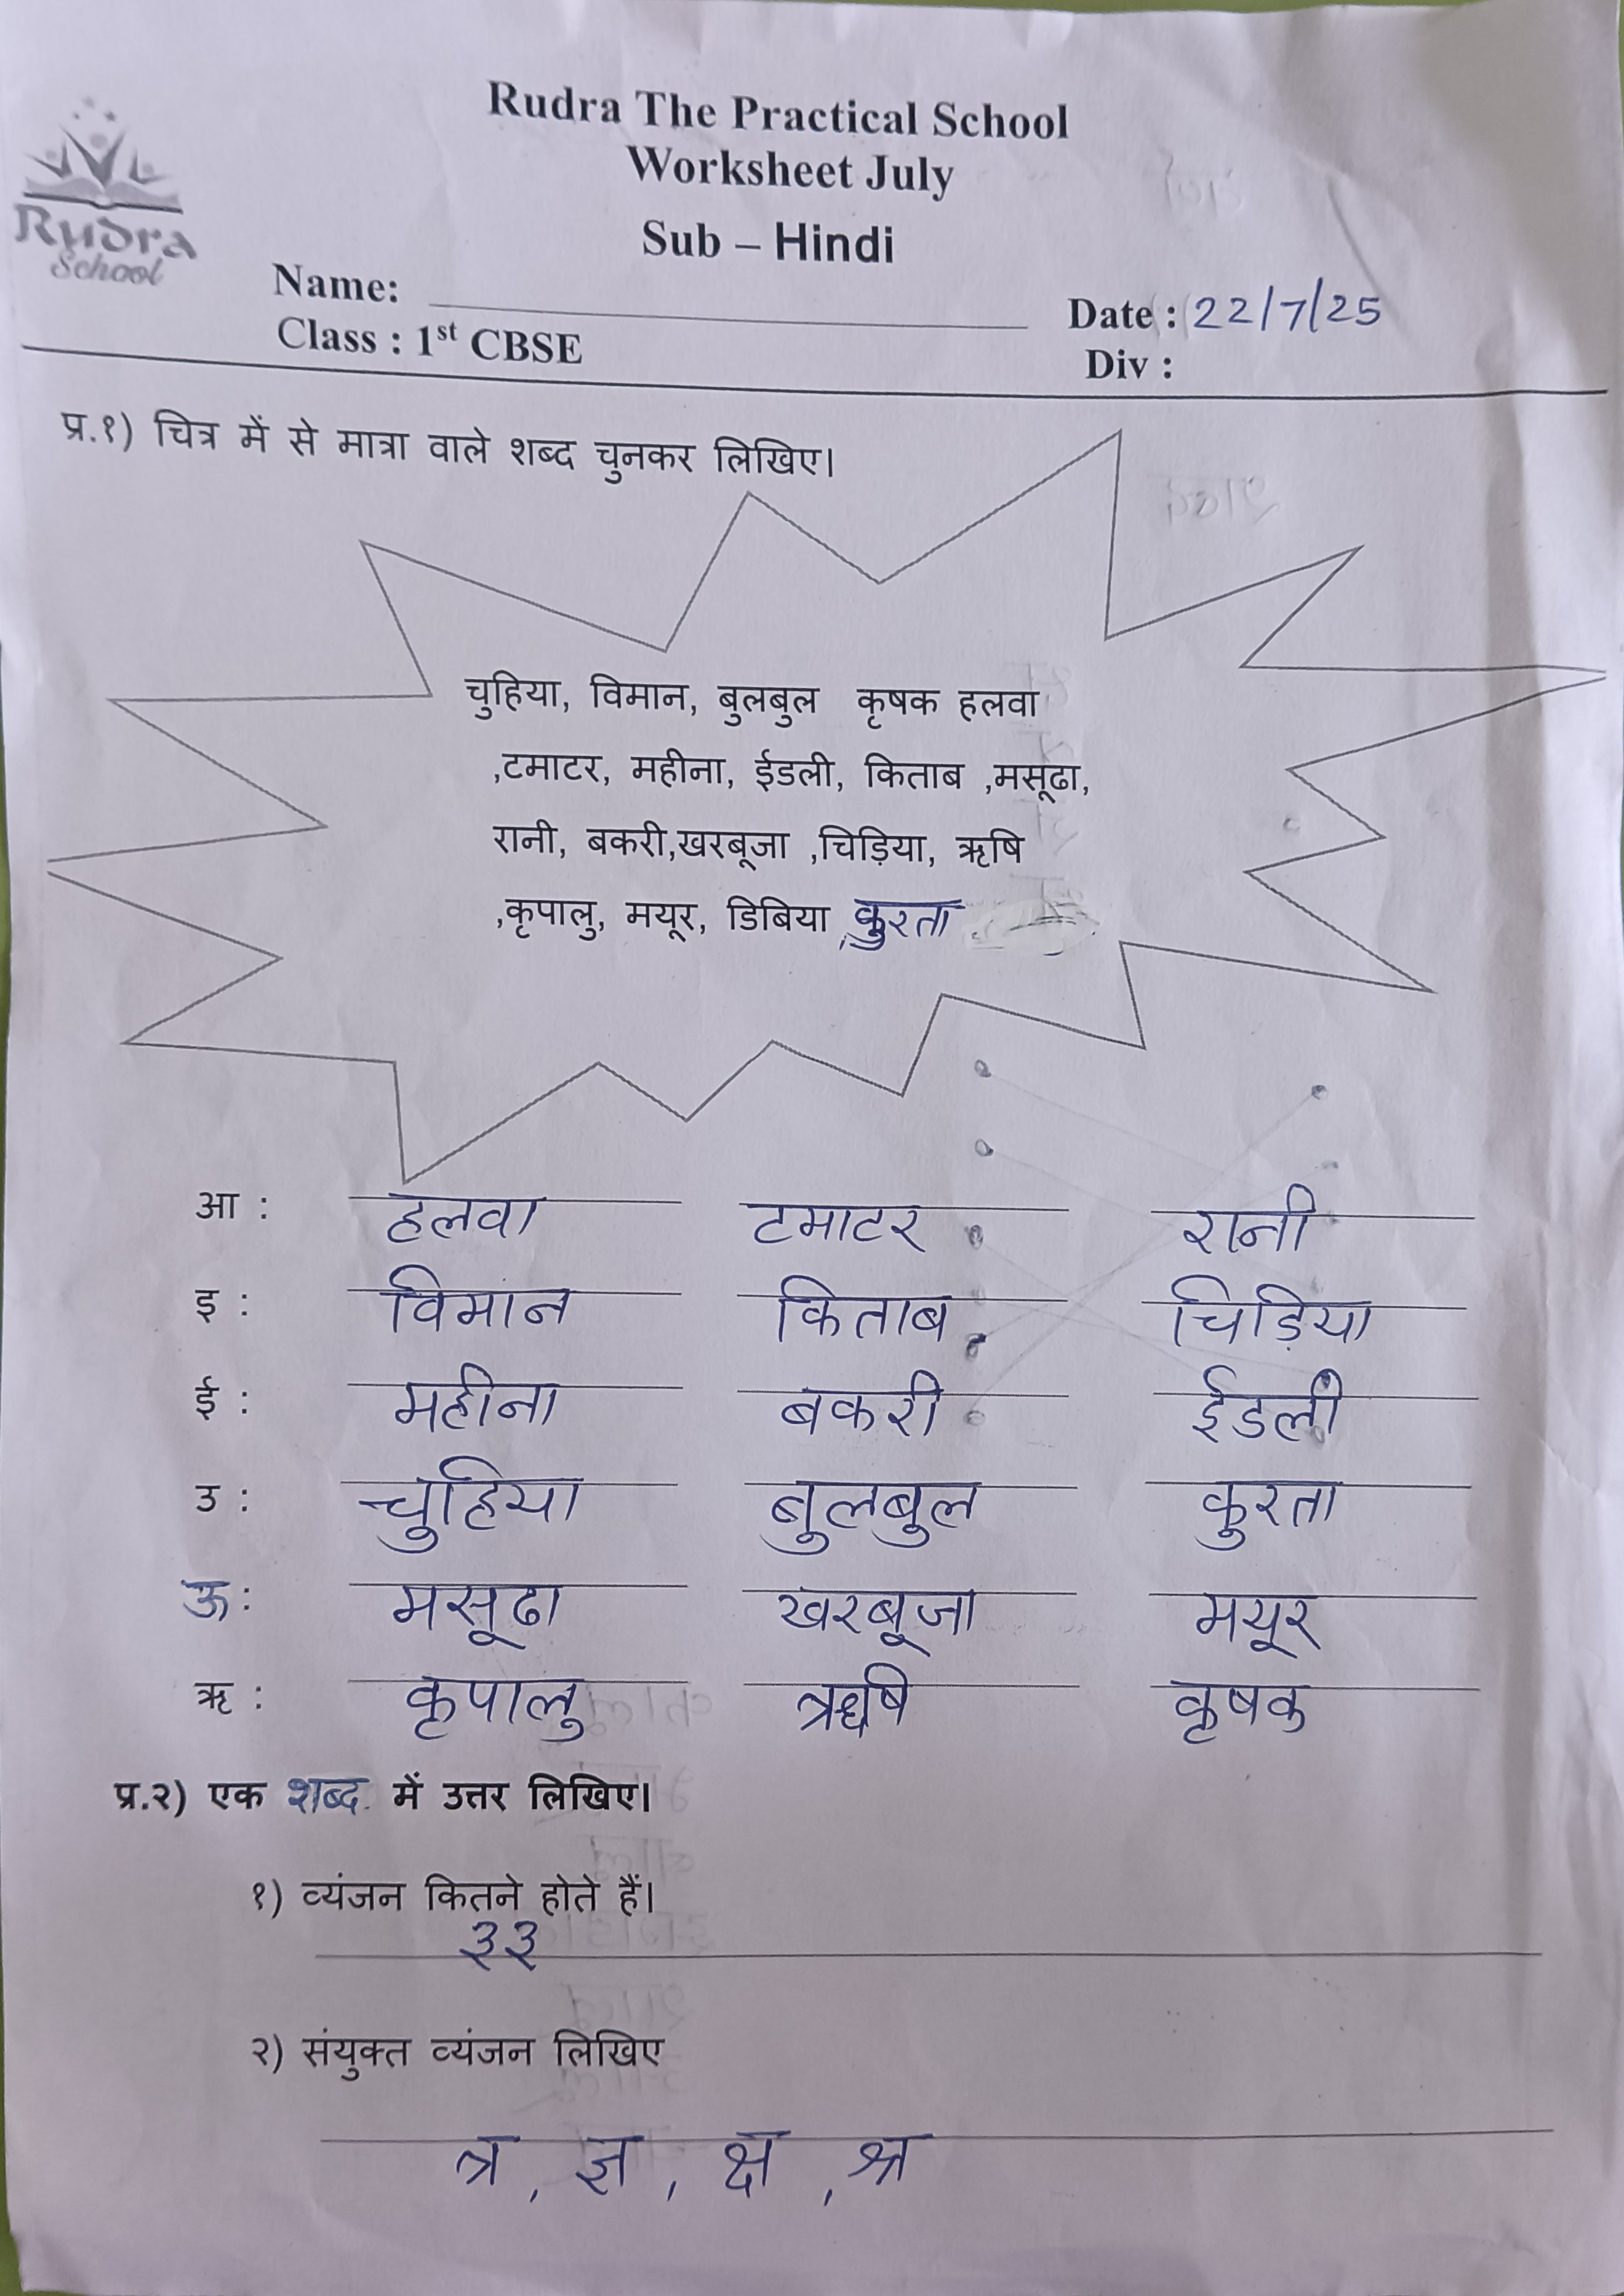 Rudra The Practical School
Worksheet July
Sub – Hindi
Rudra
School
Name:
Date : 22/7/25
Class : 1st CBSE
Div :
प्र.१) चित्र में से मात्रा वाले शब्द चुनकर लिखिए।
चुहिया, विमान, बुलबुल कृषक हलवा
,टमाटर, महीना, ईडली, किताब ,मसूढा,
रानी, बकरी,खरबूजा ,चिड़िया, ऋषि
,कृपालु, मयूर, डिबिया ,कुरता
आ : हलवा टमाटर रानी
इ : विमान किताब चिड़िया
ई : महीना बकरी ईडली
उ : चुहिया बुलबुल कुरता
ऊ : मसूढा खरबूजा मयूर
ऋ : कृपालु ऋषि कृषक
प्र.२) एक शब्द में उत्तर लिखिए।
१) व्यंजन कितने होते हैं।
३३
२) संयुक्त व्यंजन लिखिए
त्र , ज्ञ , क्ष , श्र